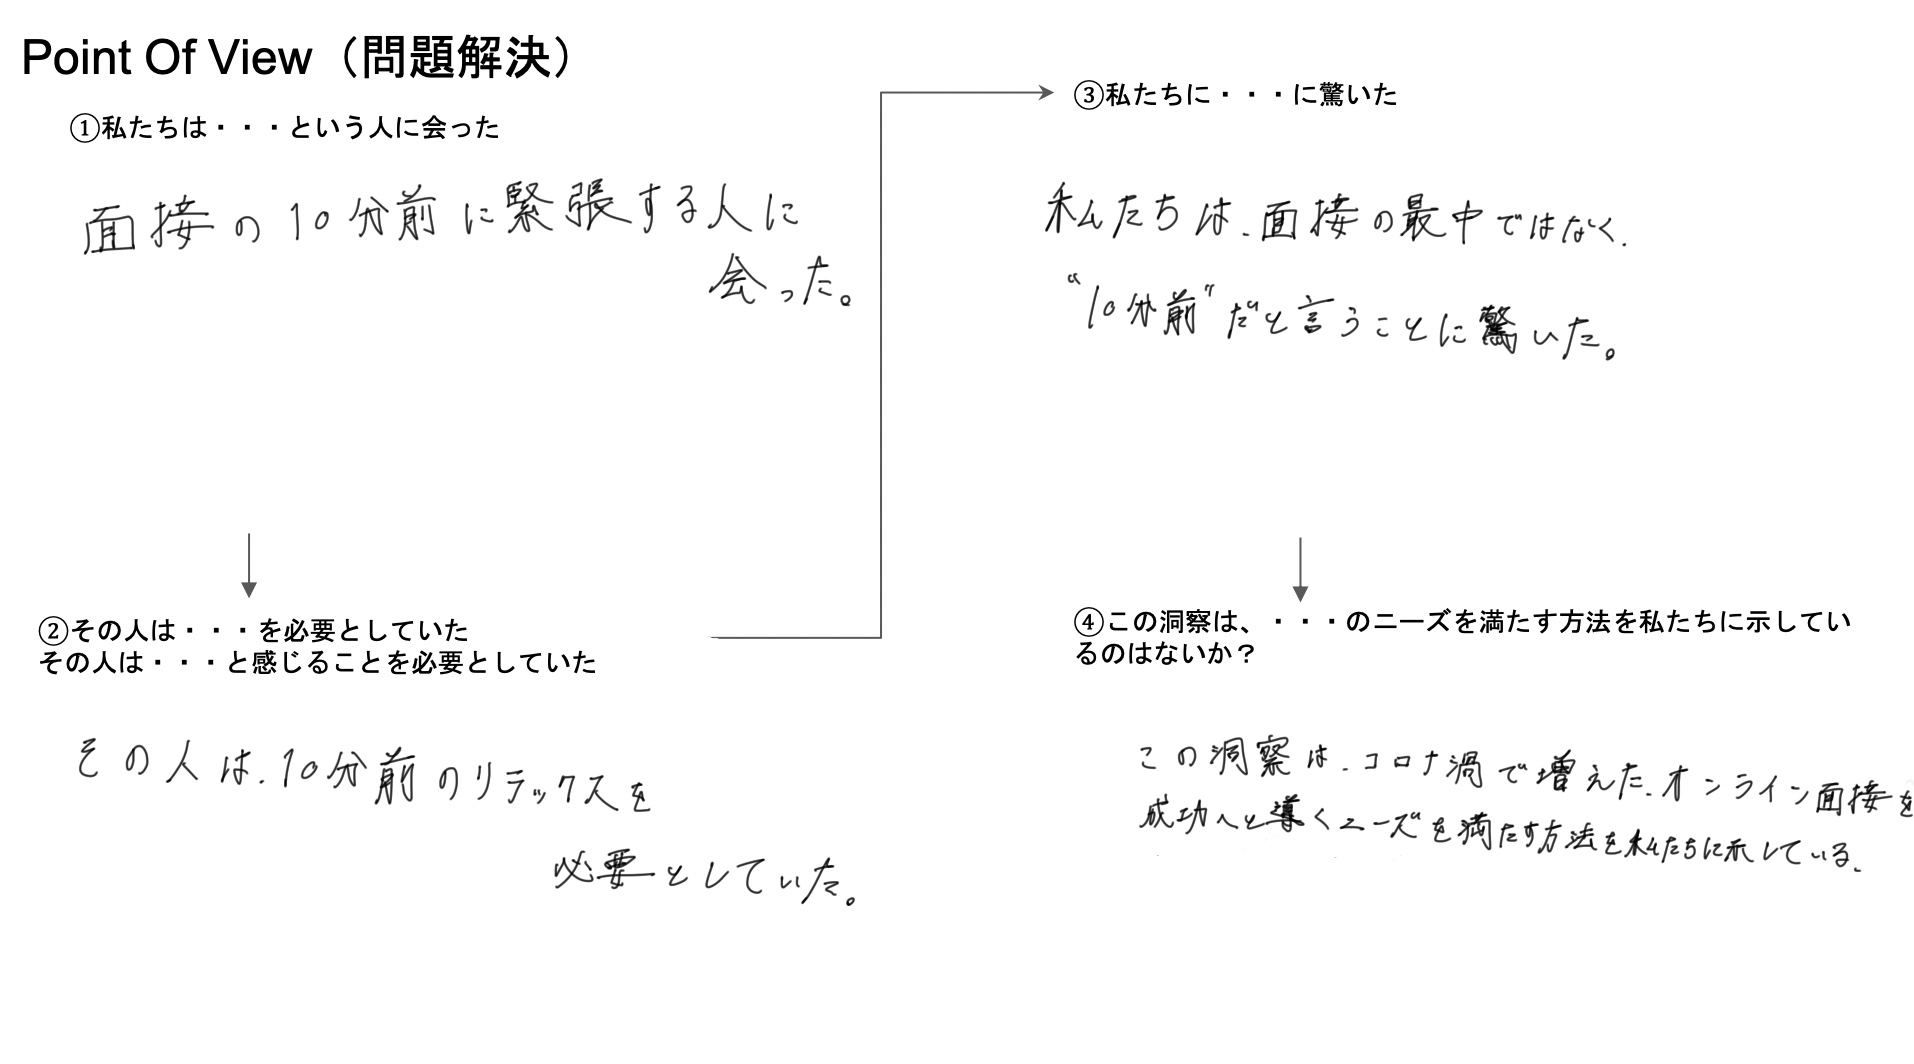 Point Of View（問題解決）
①私たちは・・・という人に会った
面接の10分前に緊張する人に
会った。
②その人は・・・を必要としていた
その人は・・・と感じることを必要としていた
その人は、10分前のリラックスを
必要としていた。
③私たちに・・・に驚いた
私たちは、面接の最中ではなく、
“10分前”だと言うことに驚いた。
④この洞察は、・・・のニーズを満たす方法を私たちに示してい
るのはないか？
この洞察は、コロナ渦で増えた、オンライン面接を
成功へと導くニーズを満たす方法を私たちに示している。